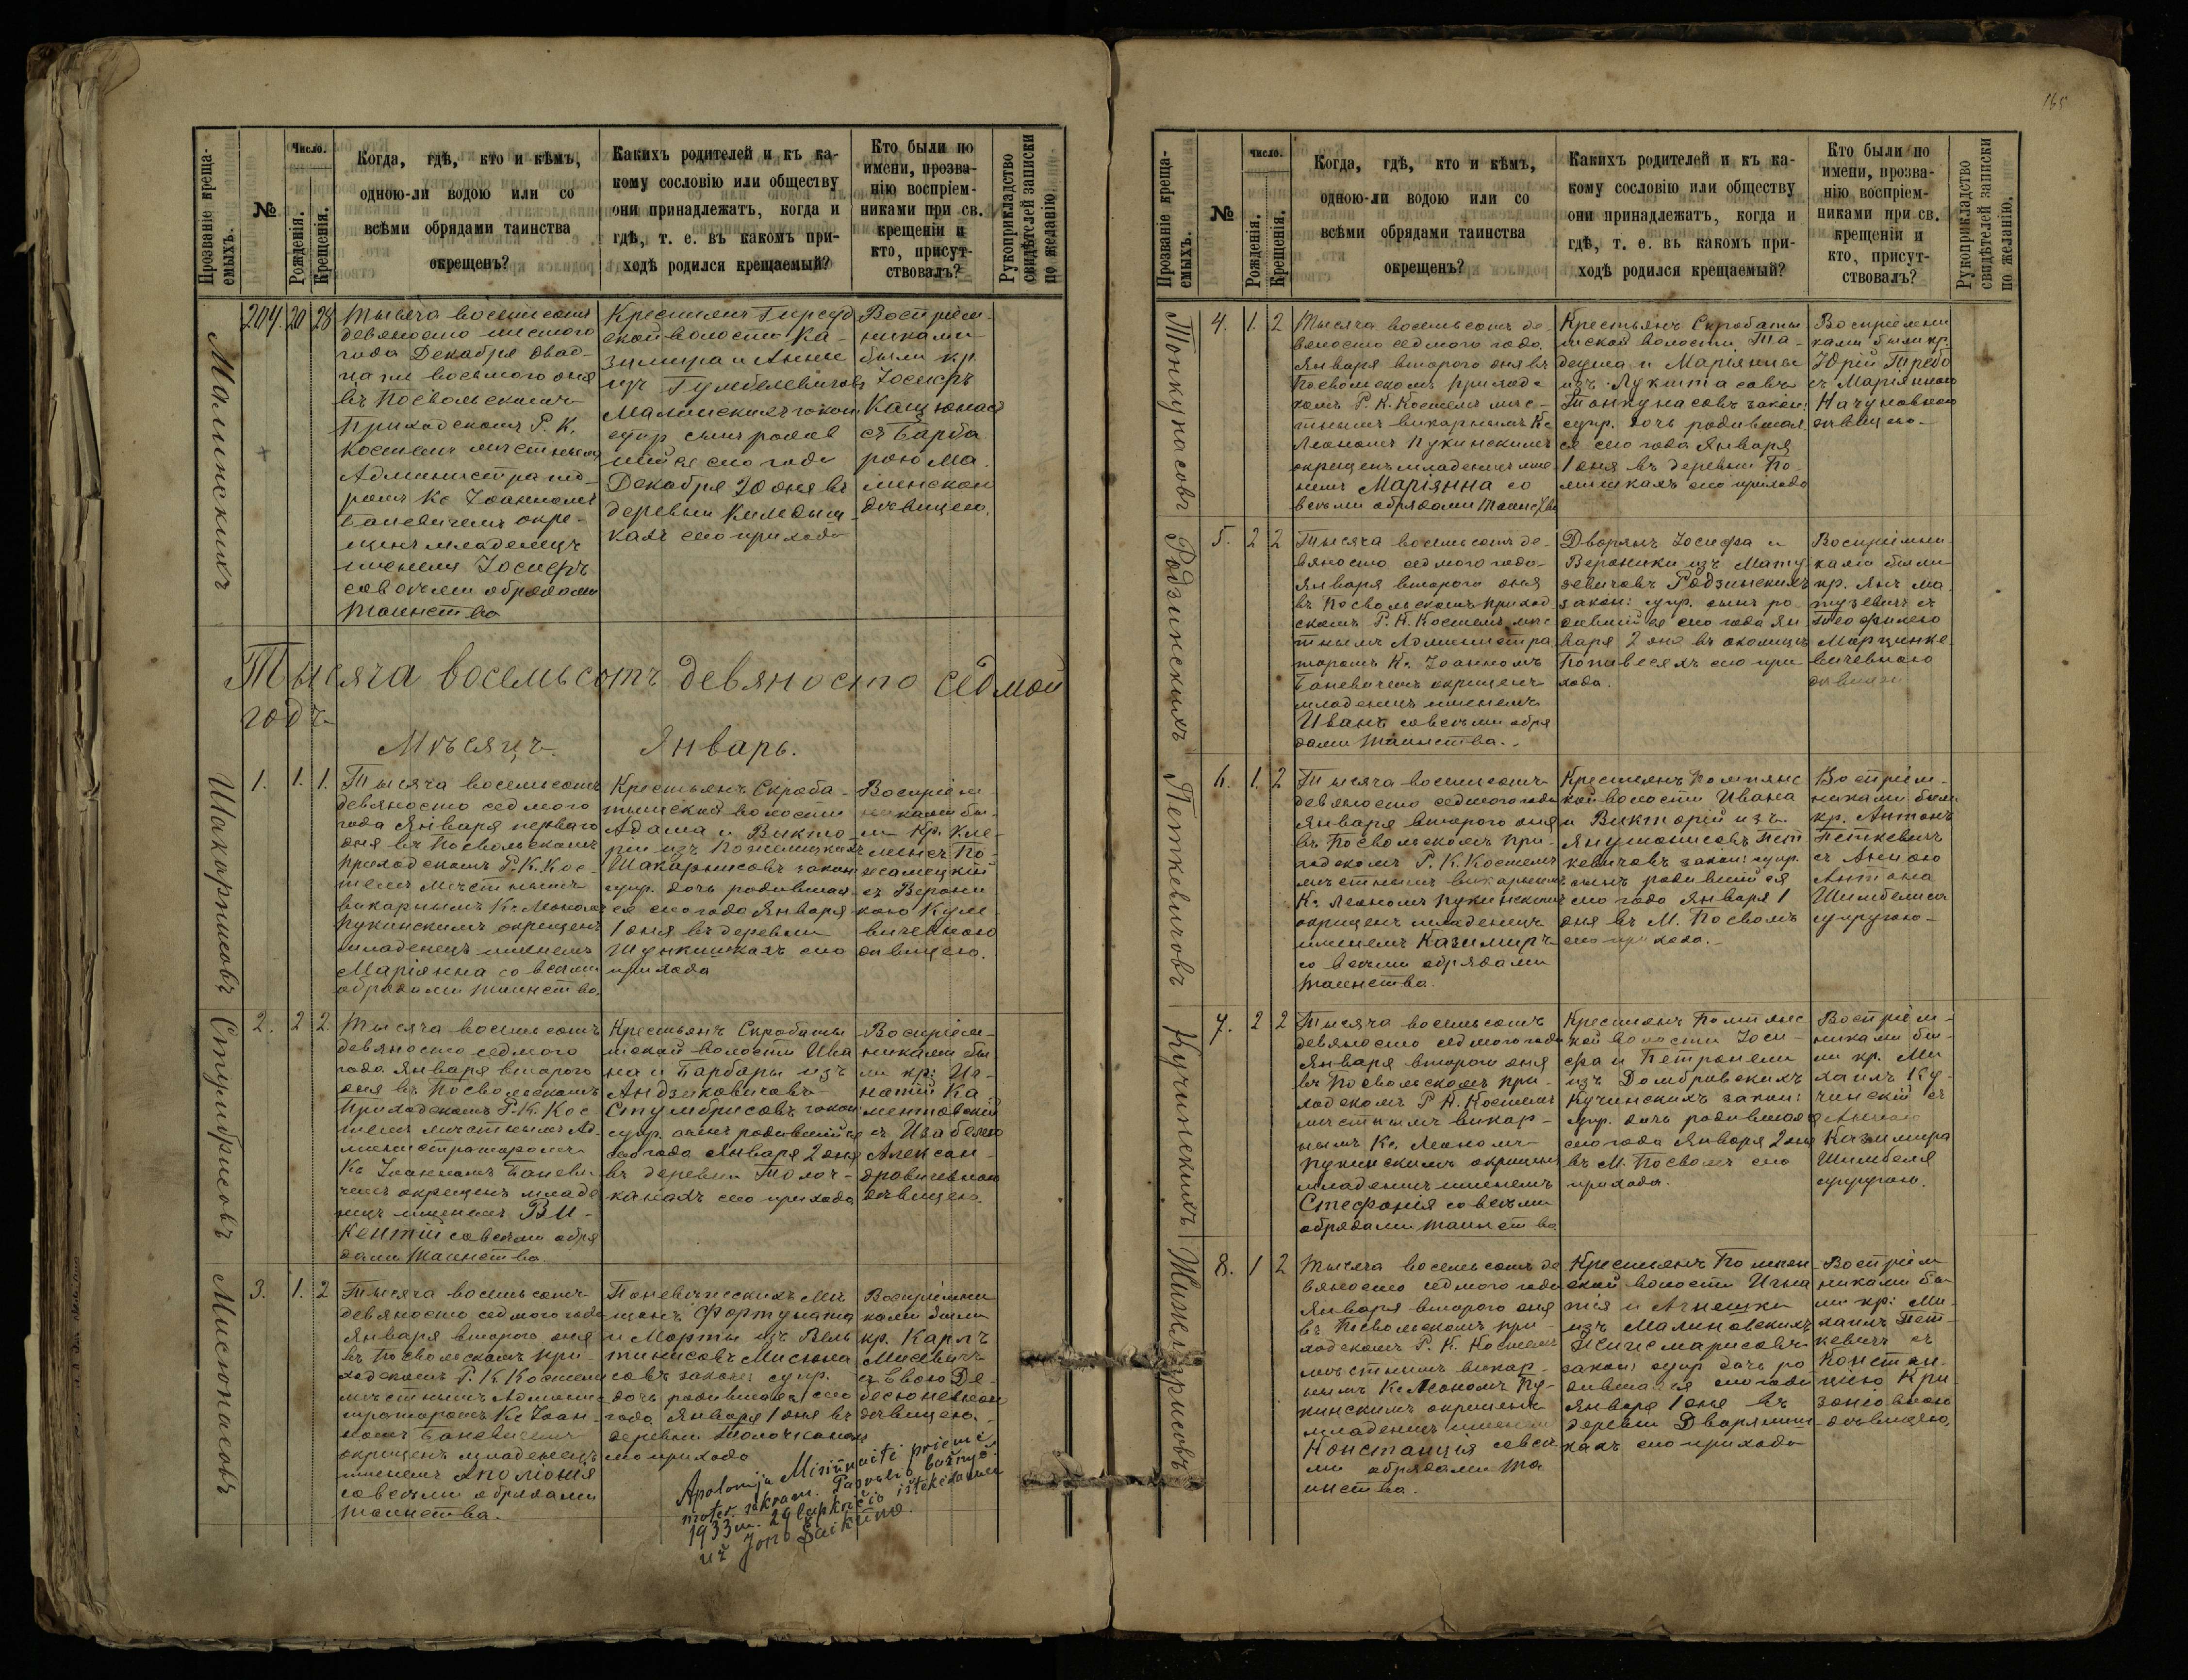 Прозваніе креща-
емыхъ.
№
Число.
Рожденія.
Крещенія.
Когда, гдѣ, кто и кѣмъ,
одною-ли водою или со
всѣми обрядами таинства
окрещенъ?
Какихъ родителей и къ ка-
кому сословію или обществу
они принадлежатъ, когда и
гдѣ, т. е. въ какомъ при-
ходѣ родился крещаемый?
Кто были по
имени, прозва-
нію воспріем-
никами при св.
крещеніи и
кто, присут-
ствовалъ?
Рукоприкладство
свидѣтелей записки
по желанію.
Малинскихъ
204. 20 28
Тысяча восемьсотъ
девяносто шестого
года Декабря двад-
цати восьмого дня
въ Посвольскомъ
Приходскомъ Р. К.
Костелѣ мѣстнымъ
Администрато-
ромъ Кс Іоанномъ
Баневичемъ окре-
щенъ младенецъ
именемъ Іосифъ
со всѣми обрядами
таинства
Казимира и Анны
Малинскихъ закон
супр. сынъ родив
шійся сего года
Декабря 20 дня въ
деревни
кахъ сего прихода
Воспріем-
никами
были кр.
Іосифъ
съ Барба
рою Ма
линскою
дѣвицею.
Тысяча восемьсотъ девяносто седмой
годъ
Мѣсяцъ Январь.
Шакарнисовъ
1. 1. 1.
Тысяча восемьсотъ
девяносто седмого
года Января перваго
дня въ Посвольскомъ
приходскомъ Р. К. Кос-
телѣ мѣстнымъ
викарнымъ Кс. Леономъ
Пукинскимъ окрещенъ
младенецъ именемъ
Маріянна со всѣми
обрядами таинства.
Крестьянъ Скроба-
тишской волости
Адама и Викто-
ріи изъ
Шакарнисовъ закон
супр. дочь родившая-
ся сего года Января
1 дня въ деревни
сего
прихода
Воспріем
никами бы-
ли кр. Кле-
менсъ По-
жемецкій
съ Верони
кою
дѣвицею.
Стумбрисовъ
2. 2 2
Тысяча восемьсотъ
девяносто седмого
года Января второго
дня въ Посвольскомъ
Приходскомъ Р. К. Кос
телѣ мѣстнымъ Ад-
министраторомъ
Кс Іоанномъ Баневи
чемъ окрещенъ младе
нецъ именемъ Ви-
кентій со всѣми обря
дами таинства.
Крестьянъ Скробаты
шской волости Ива
на и Барбары изъ
Андзюковичовъ
Стумбрисовъ закон
супр. сынъ родившійся
сего года Января 2 дня
въ деревни Толоч-
канахъ сего прихода
Воспріем-
никами бы
ли кр: Иг-
натій Ка
ментовскій
съ Изабелею
Алексан-
дровичевною
дѣвицею.
Мисюнасовъ
3. 1. 2
Тысяча восемьсотъ
девяносто седмого года
Января второго дня
въ Посвольскомъ при-
ходскомъ Р. К. Костелѣ
мѣстнымъ Админис-
траторомъ Кс Іоан-
номъ Баневичемъ
окрещенъ младенецъ
именемъ Аполіонія
со всѣми обрядами
таинства.
Поневѣжскихъ Мѣ
щанъ Фортуната
и Марты изъ
Мисюна
совъ закон: супр.
дочь родившаяся сего
года Января 1 дня въ
деревни Толочканахъ
сего прихода
Воспріемни
ками были
кр. Карлъ
Мисевичъ
съ Евою
дѣвицею.
Apolonija Misiūnaitė priėmė
moter. sakram. Pasvalio bažnyč.
1933 m. 29 lapkričio ištekėdama
už Jono Šaikūno.
165
Прозваніе креща-
емыхъ.
№
число.
Рожденія.
Крещенія.
Когда, гдѣ, кто и кѣмъ,
одною-ли водою или со
всѣми обрядами таинства
окрещенъ?
Какихъ родителей и къ ка-
кому сословію или обществу
они принадлежатъ, когда и
гдѣ, т. е. въ какомъ при-
ходѣ родился крещаемый?
Кто были по
имени, прозва-
нію воспріем-
никами при св.
крещеніи и
кто, присут-
ствовалъ?
Рукоприкладство
свидѣтелей записки
по желанію.
Тонкунасовъ
4. 1. 2
Тысяча восемьсотъ де-
вяносто седмого года
Января второго дня въ
Посвольскомъ приход-
комъ Р. К. Костелѣ мѣс-
тнымъ викарнымъ Кс
Леономъ Пукинскимъ
окрещенъ младенецъ име
немъ Маріянна со
всѣми обрядами таинства
Крестьянъ Скробаты
шской волости Та-
деуша и Маріянны
изъ Лукшта совъ
Тонкунасовъ закон:
супр. дочь родившая
ся сего года Января
1 дня въ деревни По-
мишкахъ сего прихода
Воспріемни
ками были кр.
Юрій Требо
съ Маріянною
дѣвицею.
Родзинскихъ
5. 2 2
Тысяча восемьсотъ де-
вяносто седмого года
Января второго дня
въ Посвольскомъ приход
скомъ Р. К. Костелѣ мѣс
тнымъ Администра
торомъ Кс. Іоанномъ
Баневичемъ окрещенъ
младенецъ именемъ
Иванъ со всѣми обря
дами таинства.
Дворянъ Іосифа и
Вероники изъ Мату
зевичовъ Родзинскихъ
закон: супр. сынъ ро
дившійся сего года Ян
варя 2 дня въ околицѣ
сего при
хода.
Воспріемни
ками были
кр. Янъ Ма
тузевичъ съ
Теофилею
Марцинке
вичевною
дѣвицею
Петкевичовъ
6. 1. 2
Тысяча восемьсотъ
девяносто седмого года
Января второго дня
въ Посвольскомъ при-
ходскомъ Р. К. Костелѣ
мѣстнымъ викарнымъ
Кс Леономъ Пукинскимъ
окрещенъ младенецъ
именемъ Казимиръ
со всѣми обрядами
таинства.
Крестьянъ Помпянс
кой волости Ивана
и Викторіи изъ
Янушонисовъ Пет
кевичовъ закон: супр.
сынъ родившійся
сего года Января 1
дня въ М. Посволѣ
сего прихода.
Воспріем-
никами были
кр. Антонъ
Петкевичъ
съ Анною
Антона
супругою
Кучинскихъ
7. 2 2
Тысяча восемьсотъ
девяносто седмого года
Января второго дня
въ Посвольскомъ при-
ходскомъ Р К. Костелѣ
мѣстнымъ викар-
нымъ Кс. Леономъ
Пукинскимъ окрещенъ
младенецъ именемъ
Стефанія со всѣми
обрядами таинства
Крестьянъ Помпянс
кой волости Іоси-
фа и Петронели
изъ Домбровскихъ
Кучинскихъ закон:
супр. дочь родившаяся
сего года Января 2 дня
въ М. Посволѣ сего
прихода.
Воспріем-
никами бы-
ли кр. Ми
хаилъ Ку-
чинскій съ
Анною
Казимира
Шимбеля
супругою.
8. 1 2
Тысяча восемьсотъ де
вяносто седмого года
Января второго дня
въ Посвольскомъ при-
ходскомъ Р. К. Костелѣ
мѣстнымъ викар-
нымъ Кс Леономъ Пу-
кинскимъ окрещенъ
младенецъ именемъ
Констанція со всѣ-
ми обрядами та
инства.
Крестьянъ Помпян
ской волости Игна
тія и Агнешки
изъ Малиновскихъ
закон: супр дочь ро
дившаяся сего года
Января 1 дня въ
деревни Дворяниш
кахъ сего прихода
Воспріем
никами бы
ли кр: Ми-
хаилъ Пет-
кевичъ съ
Констан-
ціею
дѣвицею.